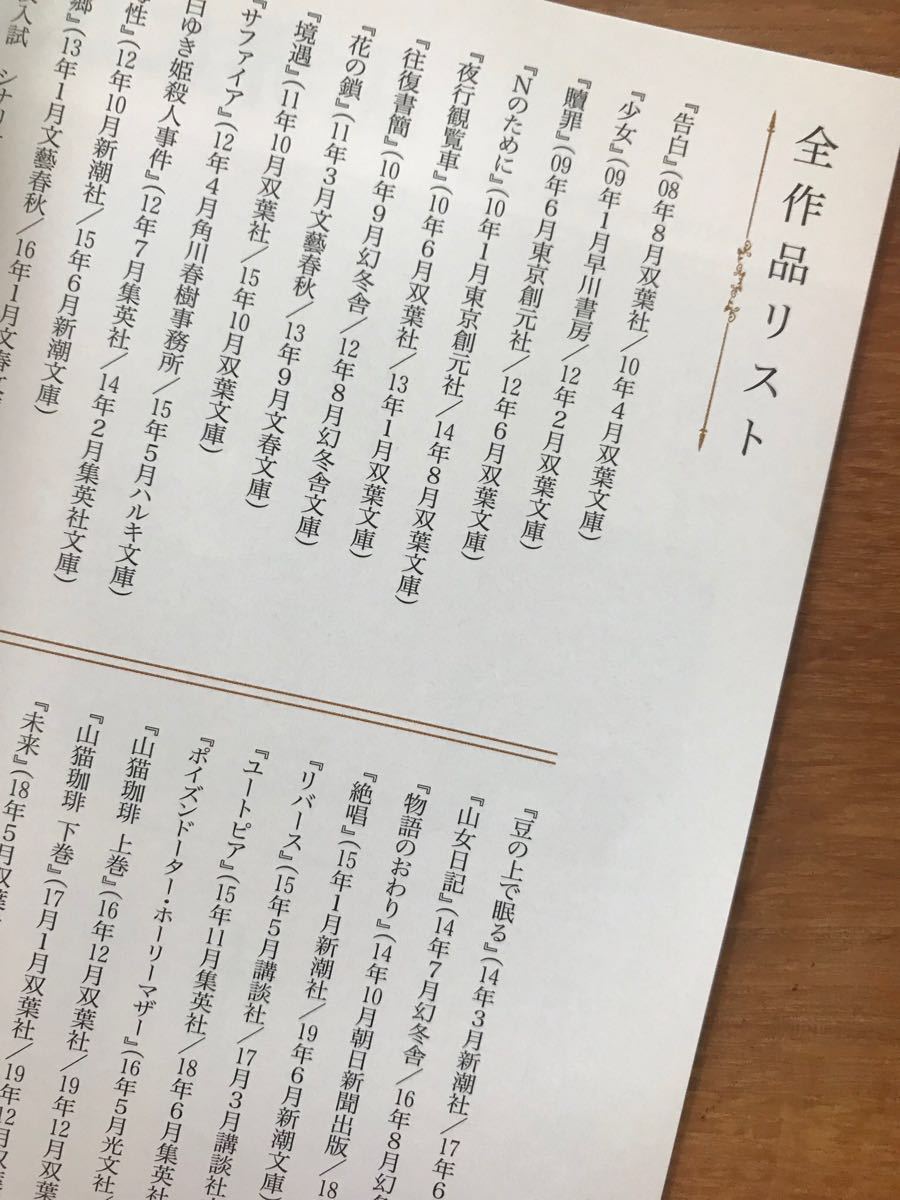 全作品リスト
『告白』(08年8月双葉社/10年4月双葉文庫)
『少女』(09年1月早川書房/12年2月双葉文庫)
『贖罪』(09年6月東京創元社/12年6月双葉文庫)
『Nのために』(10年1月東京創元社/14年8月双葉文庫)
『夜行観覧車』(10年6月双葉社/13年1月双葉文庫)
『往復書簡』(10年9月幻冬舎/12年8月幻冬舎文庫)
『花の鎖』(11年3月文藝春秋/13年9月文春文庫)
『境遇』(11年10月双葉社/15年10月双葉文庫)
『サファイア』(12年4月角川春樹事務所/15年5月ハルキ文庫)
白ゆき姫殺人事件』(12年7月集英社/14年2月集英社文庫)
性』(12年10月新潮社/15年6月新潮文庫)
郷』(13年1月文藝春秋/16年1月文春文
入試 シナリ
『豆の上で眠る』(14年3月新潮社/17年6
『山女日記』(14年7月幻冬舎/16年8月幻
『物語のおわり』(14年10月朝日新聞出版/18
『絶唱』(15年1月新潮社/19年6月新潮文庫)
『リバース』(15年5月講談社/17年3月講談社
『ユートピア』(15年11月集英社/18年6月集英社
『ポイズンドーター・ホーリーマザー』(16年5月光文社
『山猫珈琲 上巻』(16年12月双葉社/19年12月双葉
『山猫珈琲 下巻』(17年1月双葉社/19年12月双
『未来』(18年5月双葉